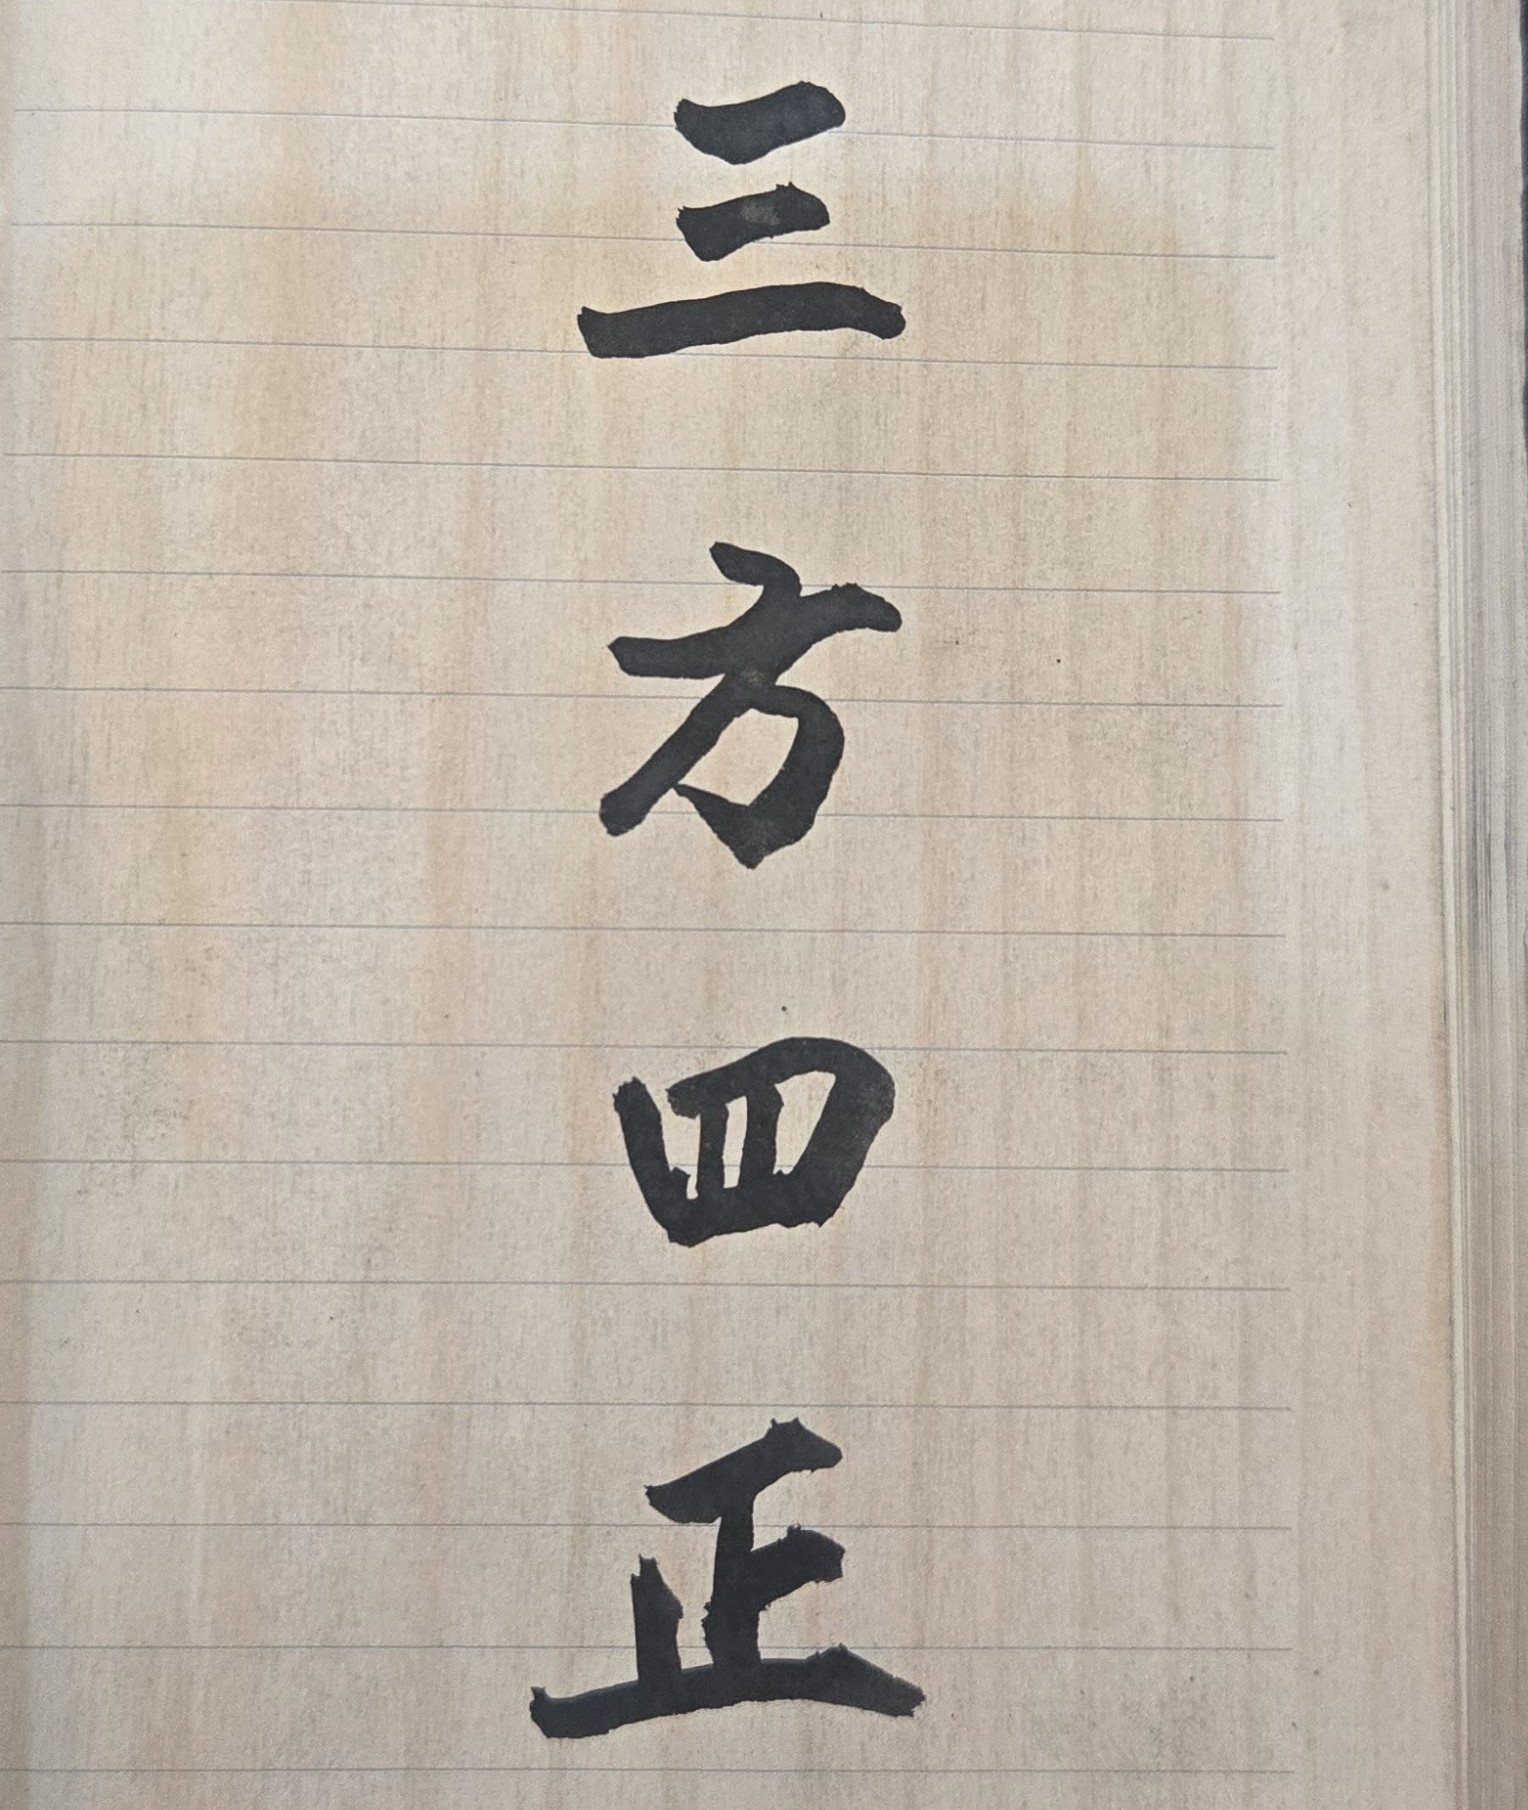 三方四正